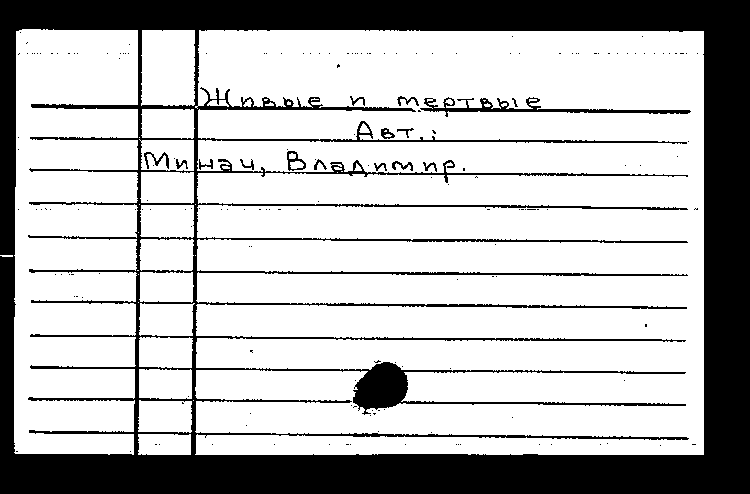 Живые и мертвые
Авт.:
Минач, Владимир.